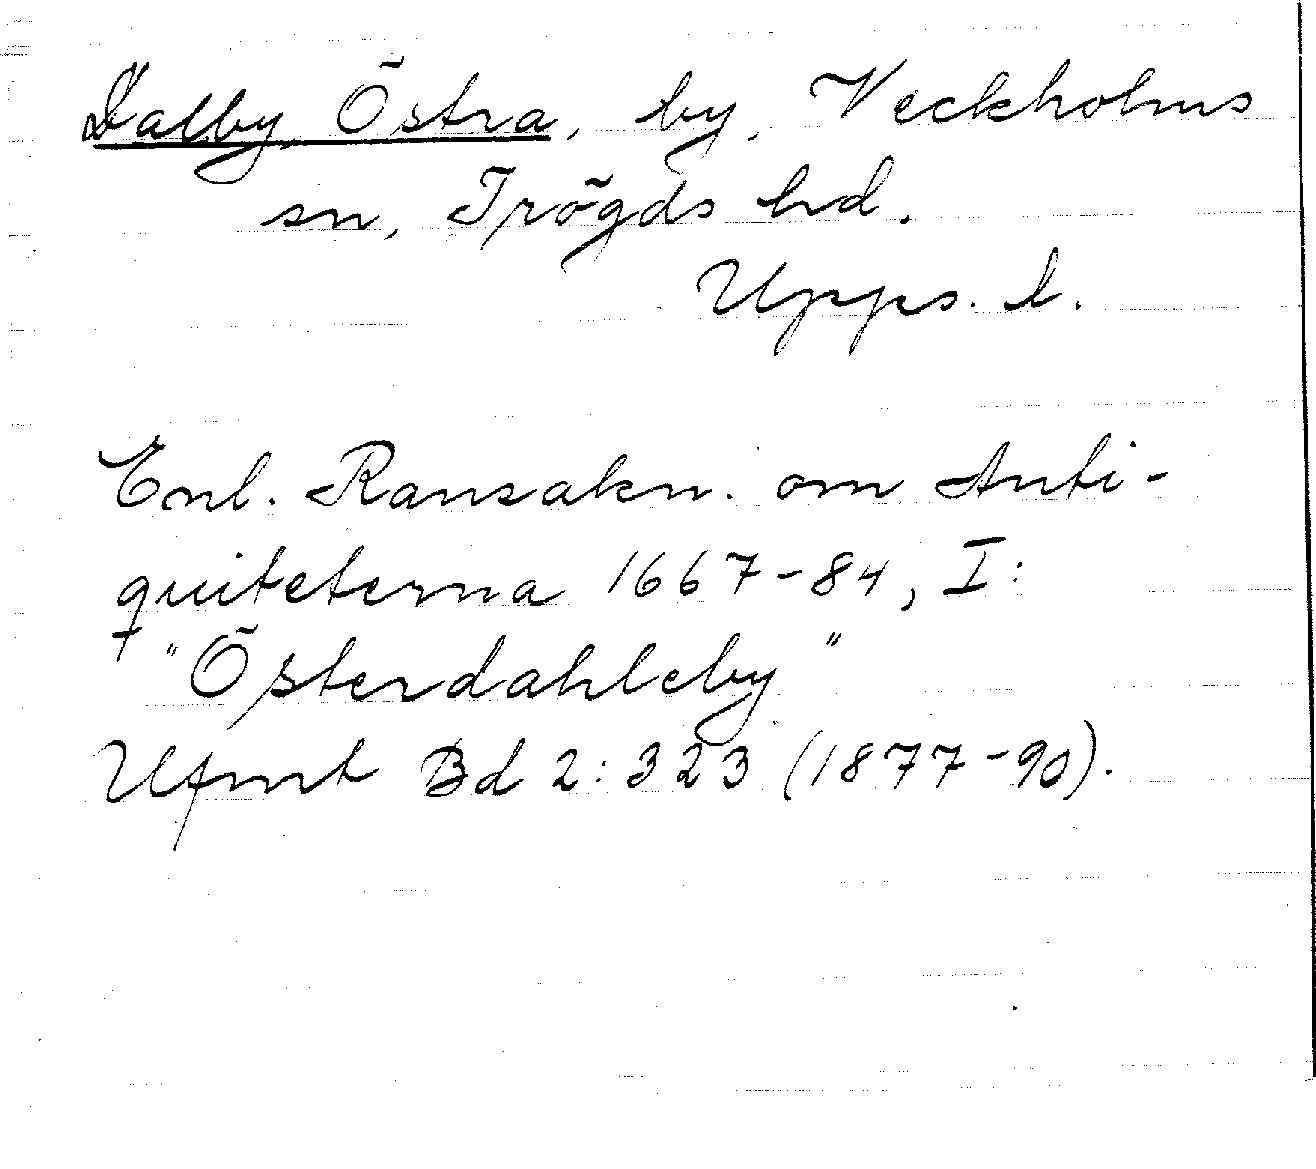 Dalby, Östra, by, Veckholms
sn, Trögds hd.
Upps. l.
Enl. Ransakn. om Anti-
quiteterna 1667-84, I:
"Österdahleby"
Ufmt Bd 2: 323 (1877-90).